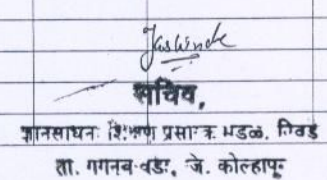 सचिव,
ज्ञानसाधन शिक्षण प्रसारक मंडळ, निवडे
ता. गगनबावडा, जि. कोल्हापूर